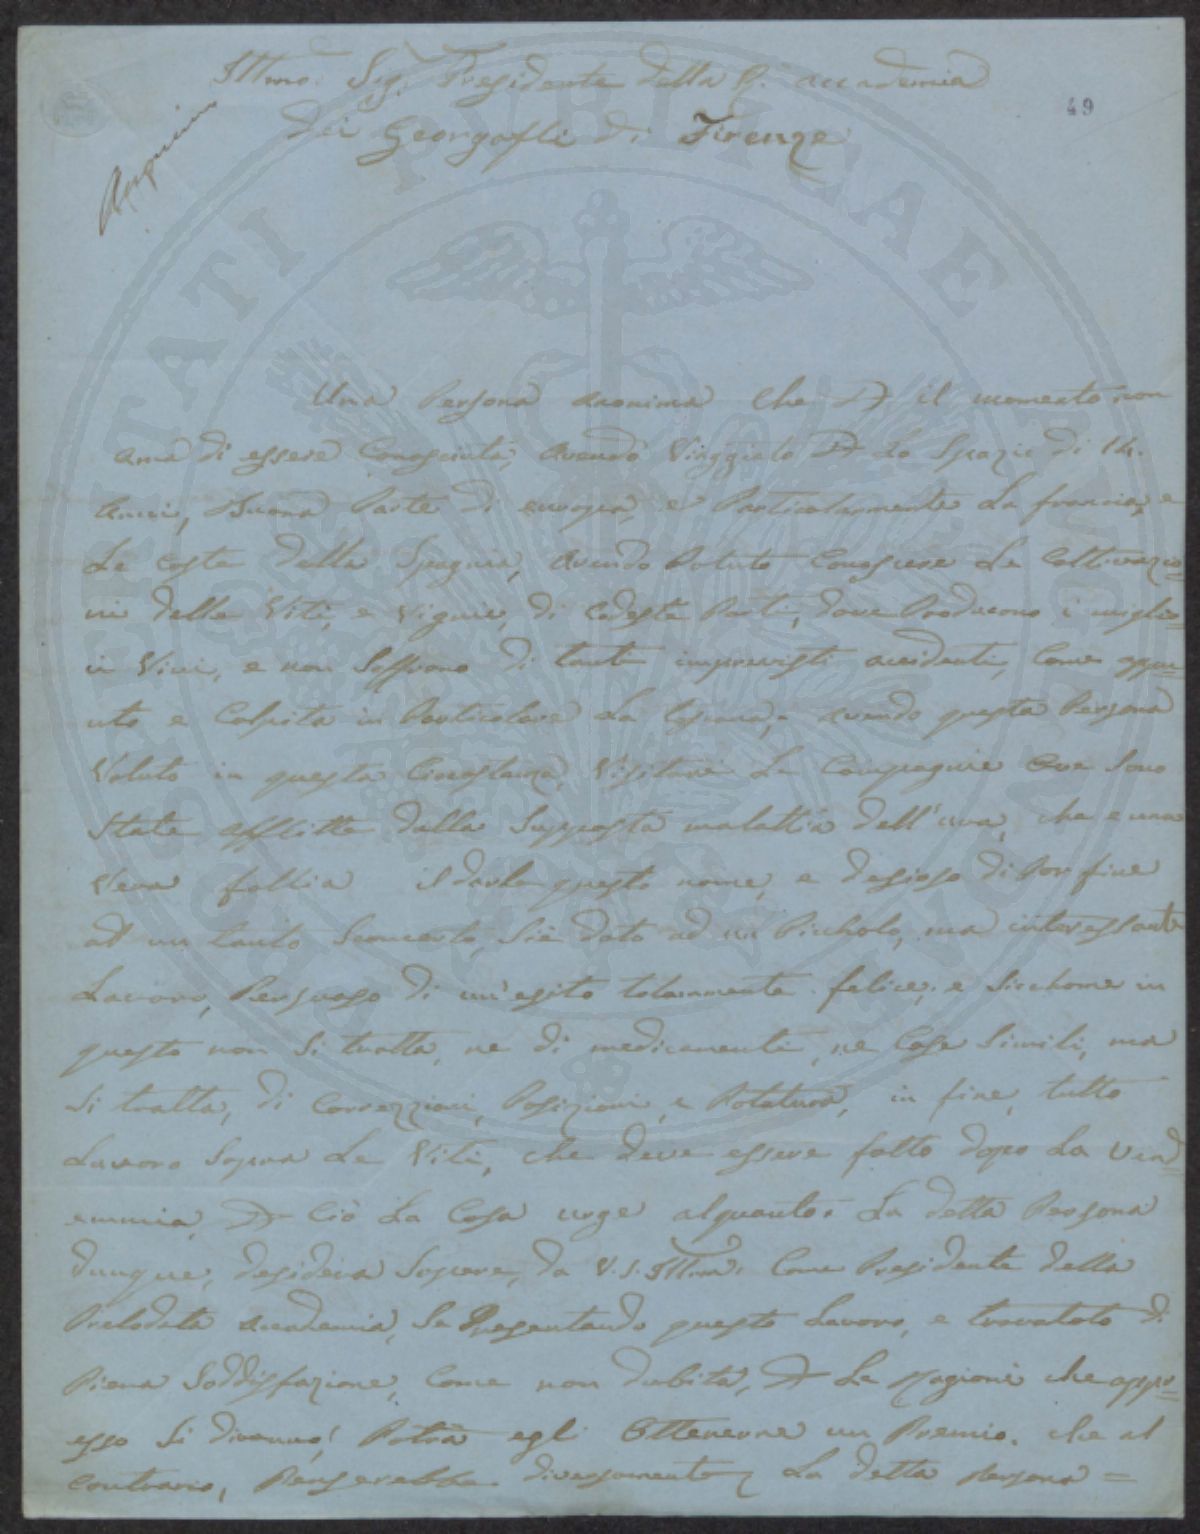 Illmo. Sig. Presidente della R. accademia
49
dei Georgofili di Firenze
Una Persona anonima che P il momento non
ama di essere Conosciuta, avendo Viaggiato P Lo Spazio di 14.
Anni, Buona Parte di europa, e Particolarmente La francia, e
Le Coste della Spagnia, avendo Potuto Conoscere Le Coltivazio=
ni delle Viti, e Vignie, di Codeste Parti, dove Producono i miglio=
ri Vini, e non Soffrono di tanti imprevisti accidenti, Come appu=
nto e Colpita in Particolare La Toscana, avendo questa Persona
Voluto in questa Circostanza, Visitare Le Campagnie Ove Sono
State afflitte dalla Supposta malattia dell'uva, che e una
Vera follia il darle questo nome, e desioso di Por fine
ad un tanto Sconcerto, Siè dato ad un Picholo, ma interessante
Lavoro, Persuaso di un'esito totalmente felice, e Sicchome in
questo non Si tratta, ne di medicamenti, ne Cose Simili, ma
Si tratta, di Correzzioni, Posizioni, e Potatura, in fine, tutto
Lavoro Sopra Le Viti, che deve essere fatto dopo La Vend=
emmia, P Ciò La Cosa urge alquanto. La detta Persona
dunque, desidera Sapere, da V.S. Illma. Come Presidente della
Prelodata accademia, Se Presentando questo Lavoro, e trovatolo di
Piena Soddisfazione, Come non dubita, P Le ragioni che appr=
esso Si diranno, Potrà egli Ottenerne un Premio. che al
Contrario, Penserebbe diversamente La detta Persona =